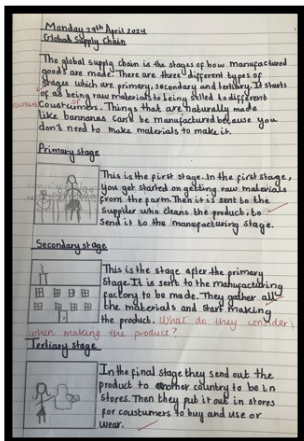 Monday 29th April 2024
Global Supply Chain
The global supply chain is the stages of how manufactured
goods are made. There are three different types of
stages which are primary, secondary and tertiary. It starts
of as being raw materials to being selled to different
Coustcumers. Things that are naturally made
like bannanas can't be manufactured because you
don't need to make materials to make it.
Primary stage
This is the first stage. In the first stage,
you get started on getting raw materials
from the farm. Then it is sent to the
supplier who cleans the product, to
send it to the manufacturing stage.
Secondary stage
This is the stage after the primary
stage. It is sent to the manufacturing
factory to be made. They gather all
the materials and start making
the product. What do they consider
when making the product?
Tertiary stage
In the final stage they send out the
product to another country to be in
stores. Then they put it out in stores
for coustumers to buy and use or
wear.